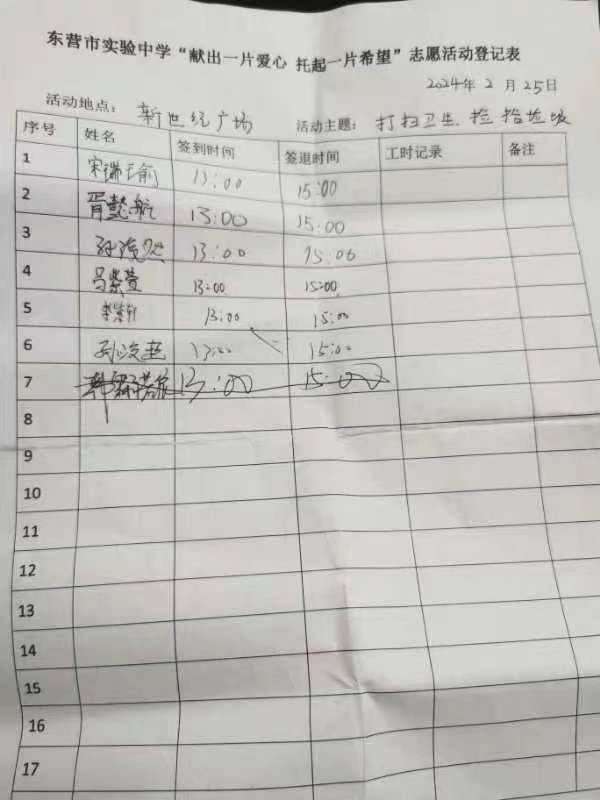 东营市实验中学“献出一片爱心 托起一片希望”志愿活动登记表
2024年 2 月 25日
活动地点： 新世纪广场 活动主题： 打扫卫生、捡拾垃圾
序号 姓名 签到时间 签退时间 工时记录 备注
1 13:00 15:00
2 胥懿航 13:00 15:00
3 13:00 15:00
4 13:00 15:00
5 13:00 15:00
6 13:00 15:00
7 13:00 15:00
8
9
10
11
12
13
14
15
16
17